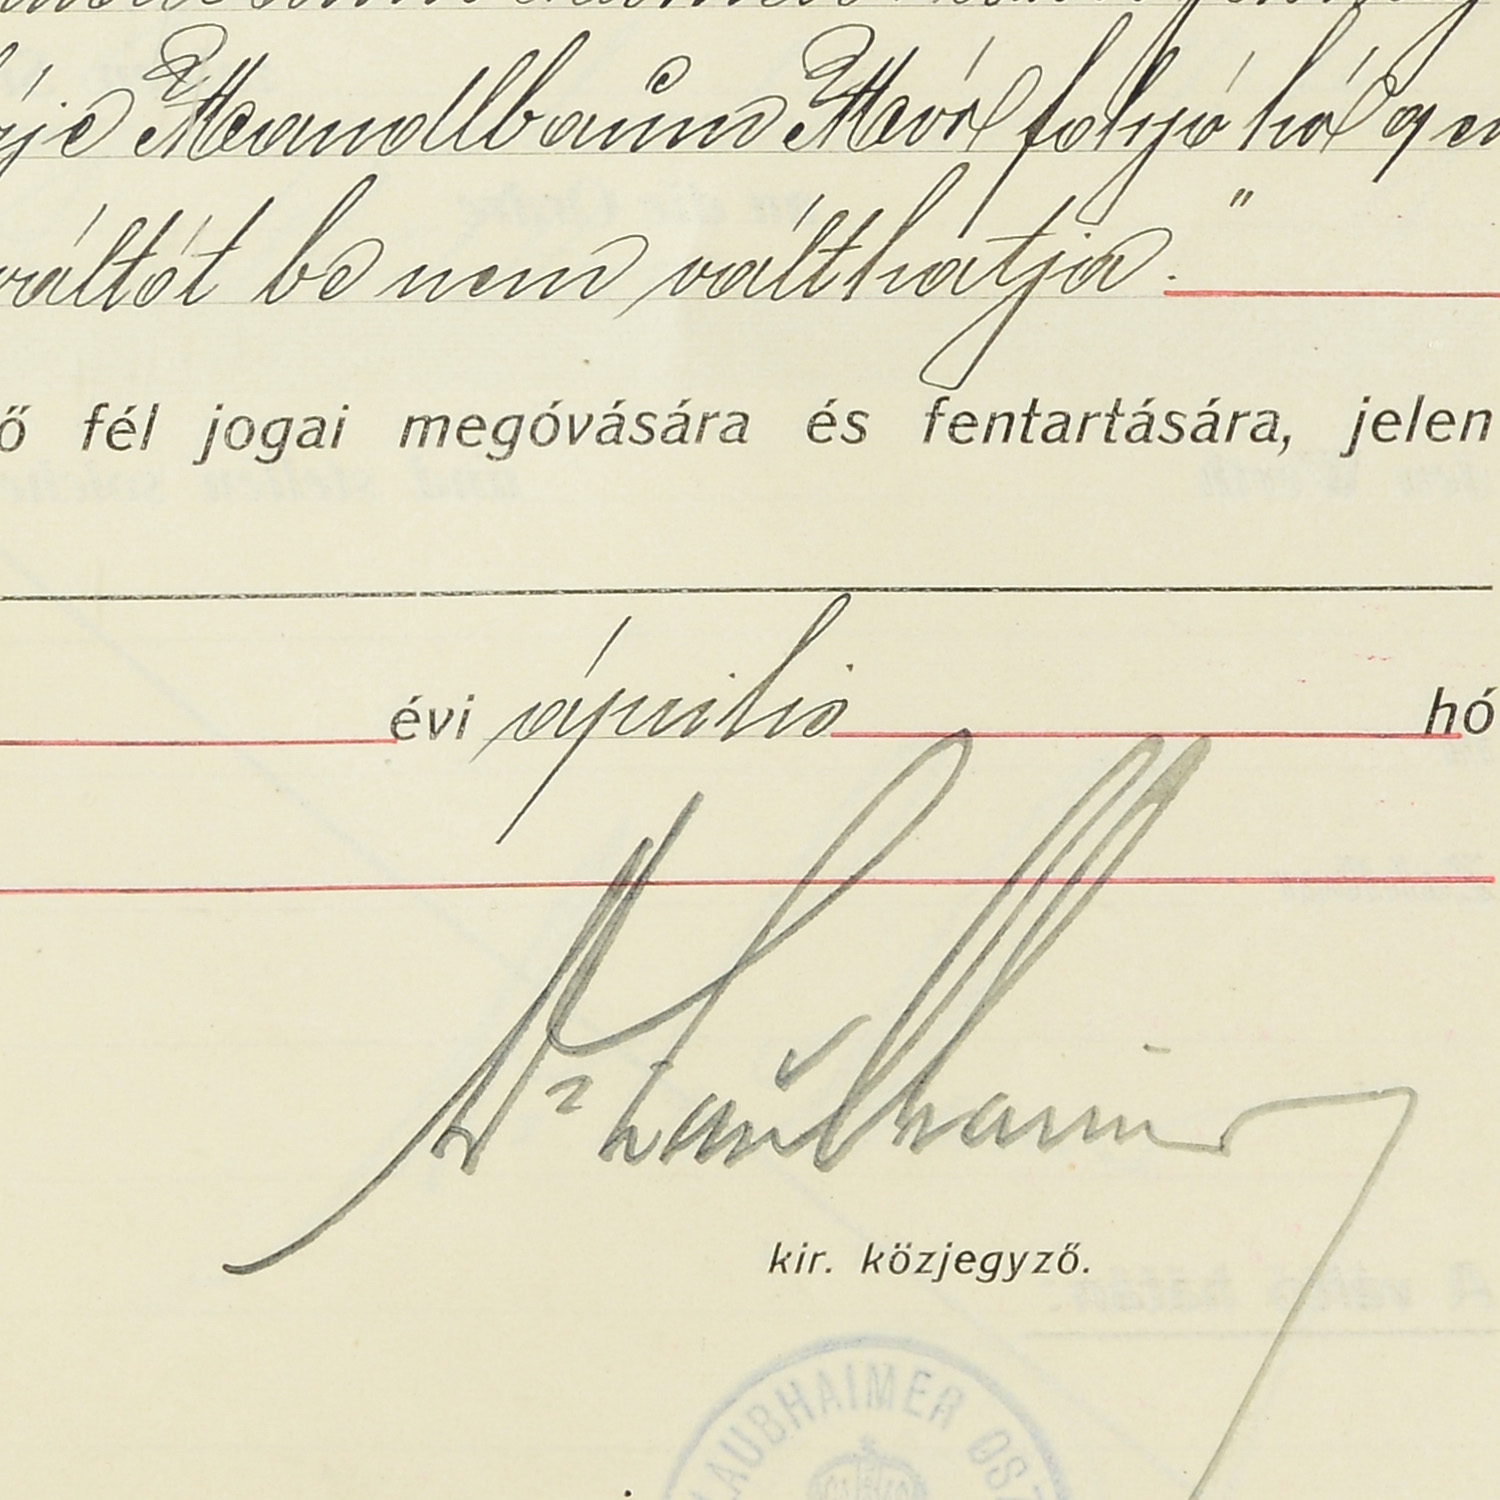 Mandlbaum Mór folyó hó 9 en
váltót be nem válthatja."
ő fél jogai megóvására és fentartására, jelen
évi április hó
Dr Laubhaimer
kir. közjegyző.
LAUBHAIMER OSZ